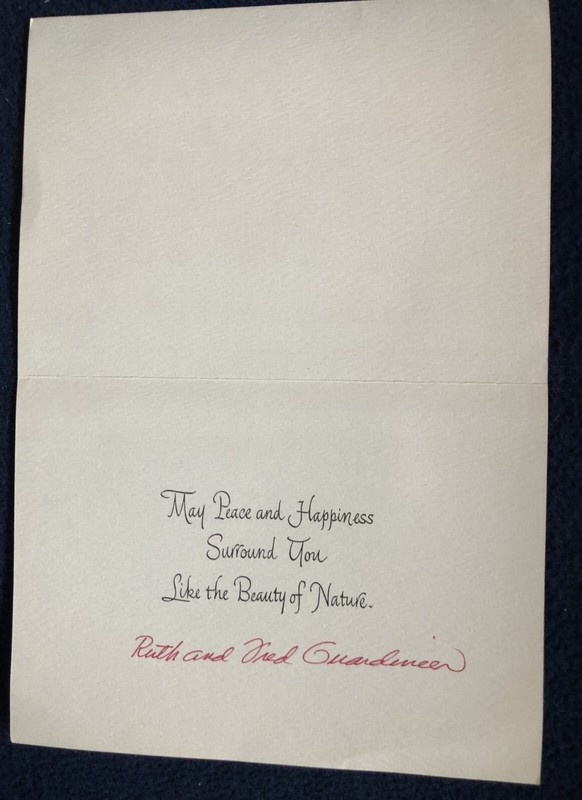 May Peace and Happiness
Surround You
Like the Beauty of Nature.
Ruth and Fred Guardineer